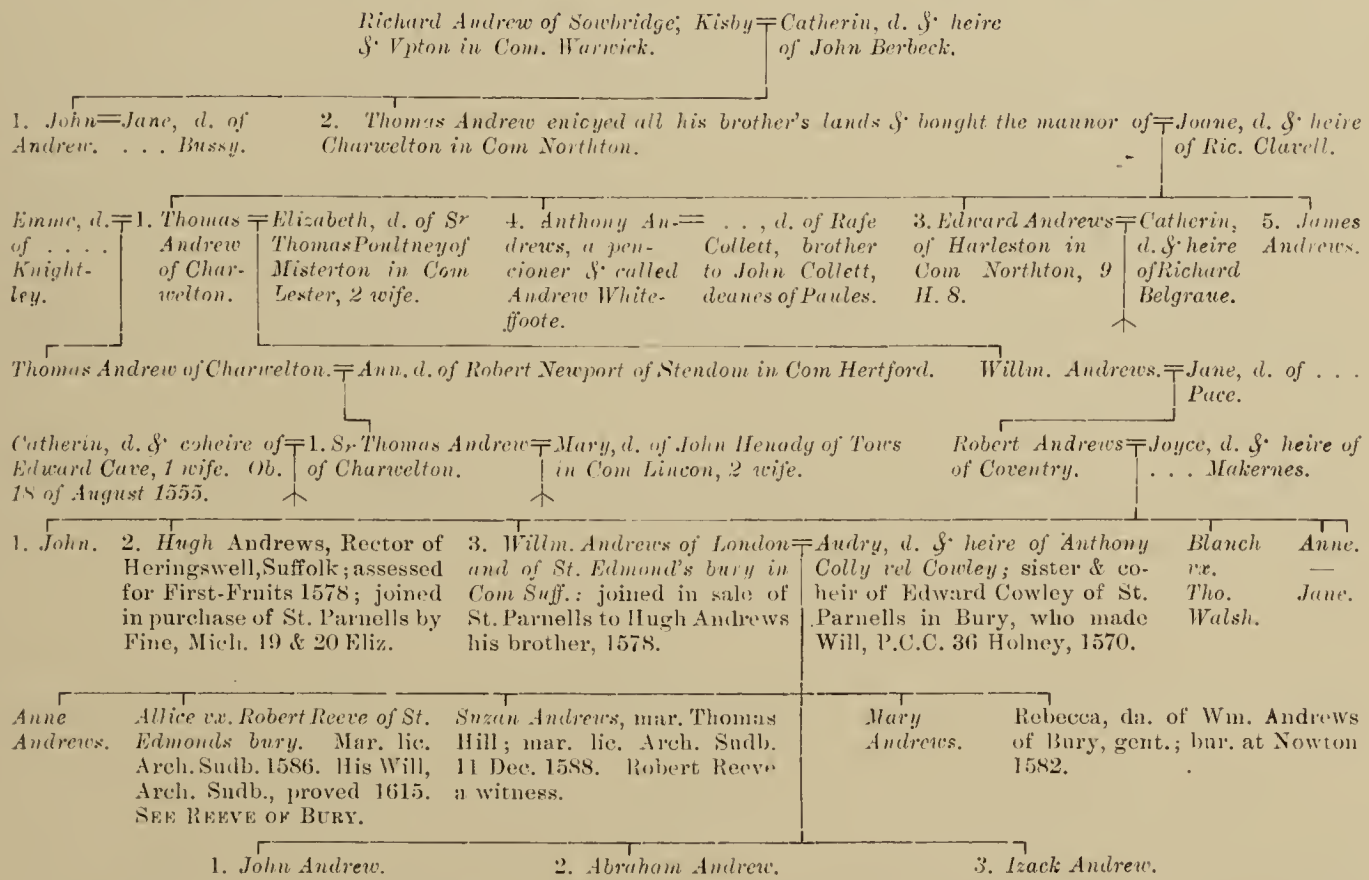 Richard Andrew of Sowbridge, Kisby = Catherin, d. & heire
& Vpton in Com. Warwick. of John Berbeck.
1. John = Jane, d. of
Andrew. . . . Bussy.
2. Thomas Andrew enioyed all his brother's lands & bought the mannor of = Joane, d. & heire
Charwelton in Com Northton. of Ric. Clavell.
Emme, d.
of . . . .
Knight-
ley.
1. Thomas
Andrew
of Char-
welton.
Elizabeth, d. of Sr
Thomas Poultney of
Misterton in Com
Lester, 2 wife.
4. Anthony An-
drews, a pen-
cioner & called
Andrew White-
ffoote.
. . , d. of Rafe
Collett, brother
to John Collett,
deanes of Paules.
3. Edward Andrews
of Harleston in
Com Northton, 9
H. 8.
Catherin,
d. & heire
of Richard
Belgraue.
5. James
Andrews.
Thomas Andrew of Charwelton. = Ann. d. of Robert Newport of Stendom in Com Hertford.
Willm. Andrews. = Jane, d. of . . .
Pace.
Catherin, d. & coheire of
Edward Cave, 1 wife. Ob.
18 of August 1555.
1. Sr Thomas Andrew
of Charwelton.
Mary, d. of John Henady of Tows
in Com Lincon, 2 wife.
Robert Andrews
of Coventry.
Joyce, d. & heire of
. . . Makernes.
1. John.
2. Hugh Andrews, Rector of
Heringswell, Suffolk; assessed
for First-Fruits 1578; joined
in purchase of St. Parnells by
Fine, Mich. 19 & 20 Eliz.
3. Willm. Andrews of London
and of St. Edmond's bury in
Com Suff.: joined in sale of
St. Parnells to Hugh Andrews
his brother, 1578.
Audry, d. & heire of Anthony
Colly vel Cowley; sister & co-
heir of Edward Cowley of St.
Parnells in Bury, who made
Will, P.C.C. 36 Holney, 1570.
Blanch
vx.
Tho.
Walsh.
Anne.
—
Jane.
Anne
Andrews.
Allice vx. Robert Reeve of St.
Edmonds bury. Mar. lic.
Arch. Sudb. 1586. His Will,
Arch. Sudb., proved 1615.
SEE REEVE OF BURY.
Suzan Andrews, mar. Thomas
Hill; mar. lic. Arch. Sudb.
11 Dec. 1588. Robert Reeve
a witness.
Mary
Andrews.
Rebecca, da. of Wm. Andrews
of Bury, gent.; bur. at Nowton
1582.
1. John Andrew. 2. Abraham Andrew. 3. Izack Andrew.